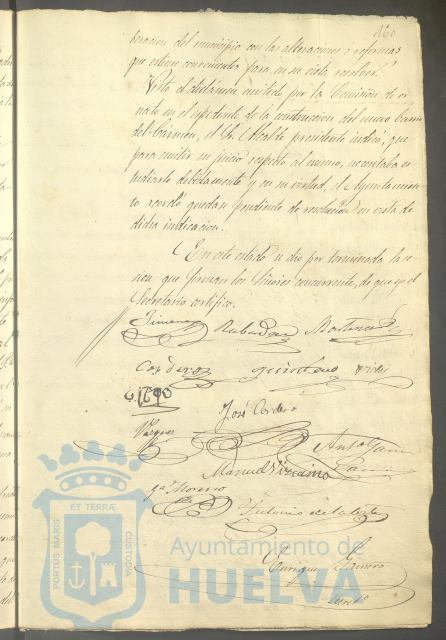 160
beracion del municipio con las alteraciones ó reformas
que estime convenientes para en su vista resolver.
Visto el dictámen emitido por la Comision de or-
nato en el espediente de la construccion del nuevo Barrio
del Carmen, el Sr. Alcalde presidente indicó, que
para emitir su juicio respecto al mismo, necesitaba es-
tudiarlo debidamente y en su virtud, el Ayuntamien-
to acordó quedara pendiente de resolucion en vista de
dicha indicacion.
En este estado se dio por terminada la se-
sion que firman los Señores concurrentes, de que yo el
Secretario certifico.
Jimenez Rabadan
Cordero Quintero
José Cordero
Vazquez
Manuel Vizcaino
Ga. Moreno
Antonio de la
Enrique
PORTUS MARIS ET TERRÆ CUSTODIA
Ayuntamiento de
HUELVA